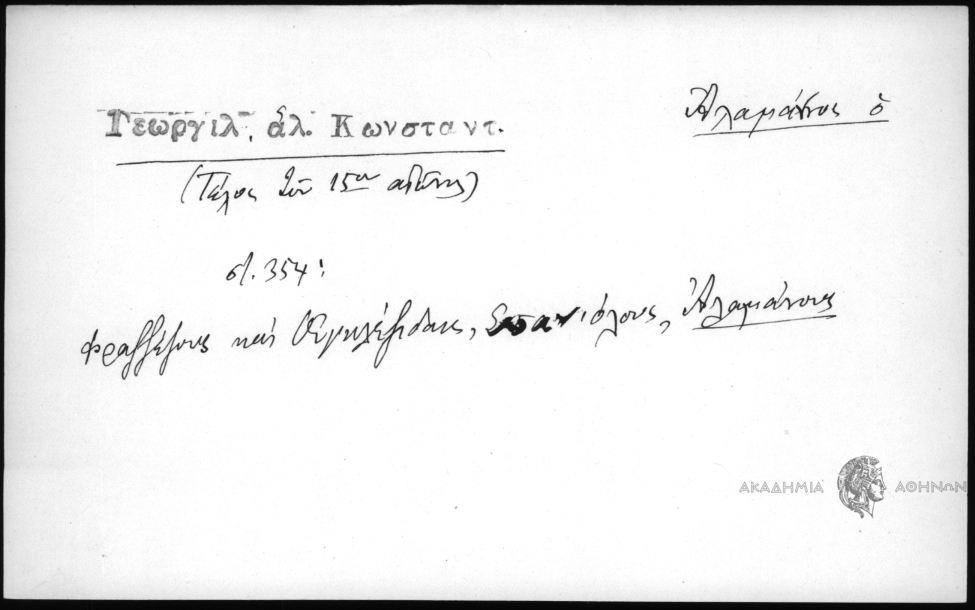 Ἀλαμάνος ὁ
Γεωργιλ, ἁλ. Κωνσταντ.
(Τέλος τοῦ 15ου αἰῶνος)
στ. 354:
Φραντζέζους καὶ Ἐγκλέζιδαις, Σπανιόλους, Ἀλαμάνους
ΑΚΑΔΗΜΙΑ ΑΘΗΝΩΝ